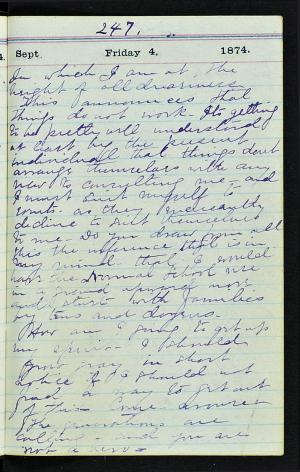 247.
Sept. Friday 4, 1874.
In which I am at the
height of all dreariness
This announces that
things do not work. Its getting
to be pretty well understood
at last by the present
individual that things don't
arrange themselves with any
view to consulting me - and
I must suit myself to
as they
decline to suit themselves
to me. Do you draw from all
this the inference that is in
my mind that I would
the Normal School
and start with families
by tens and dozens.
How am I going to get up
my spirits - I should
grow gray in short
notice if I should not
find a way to get out
of this
The generations are
calling - and you are
not a hero -